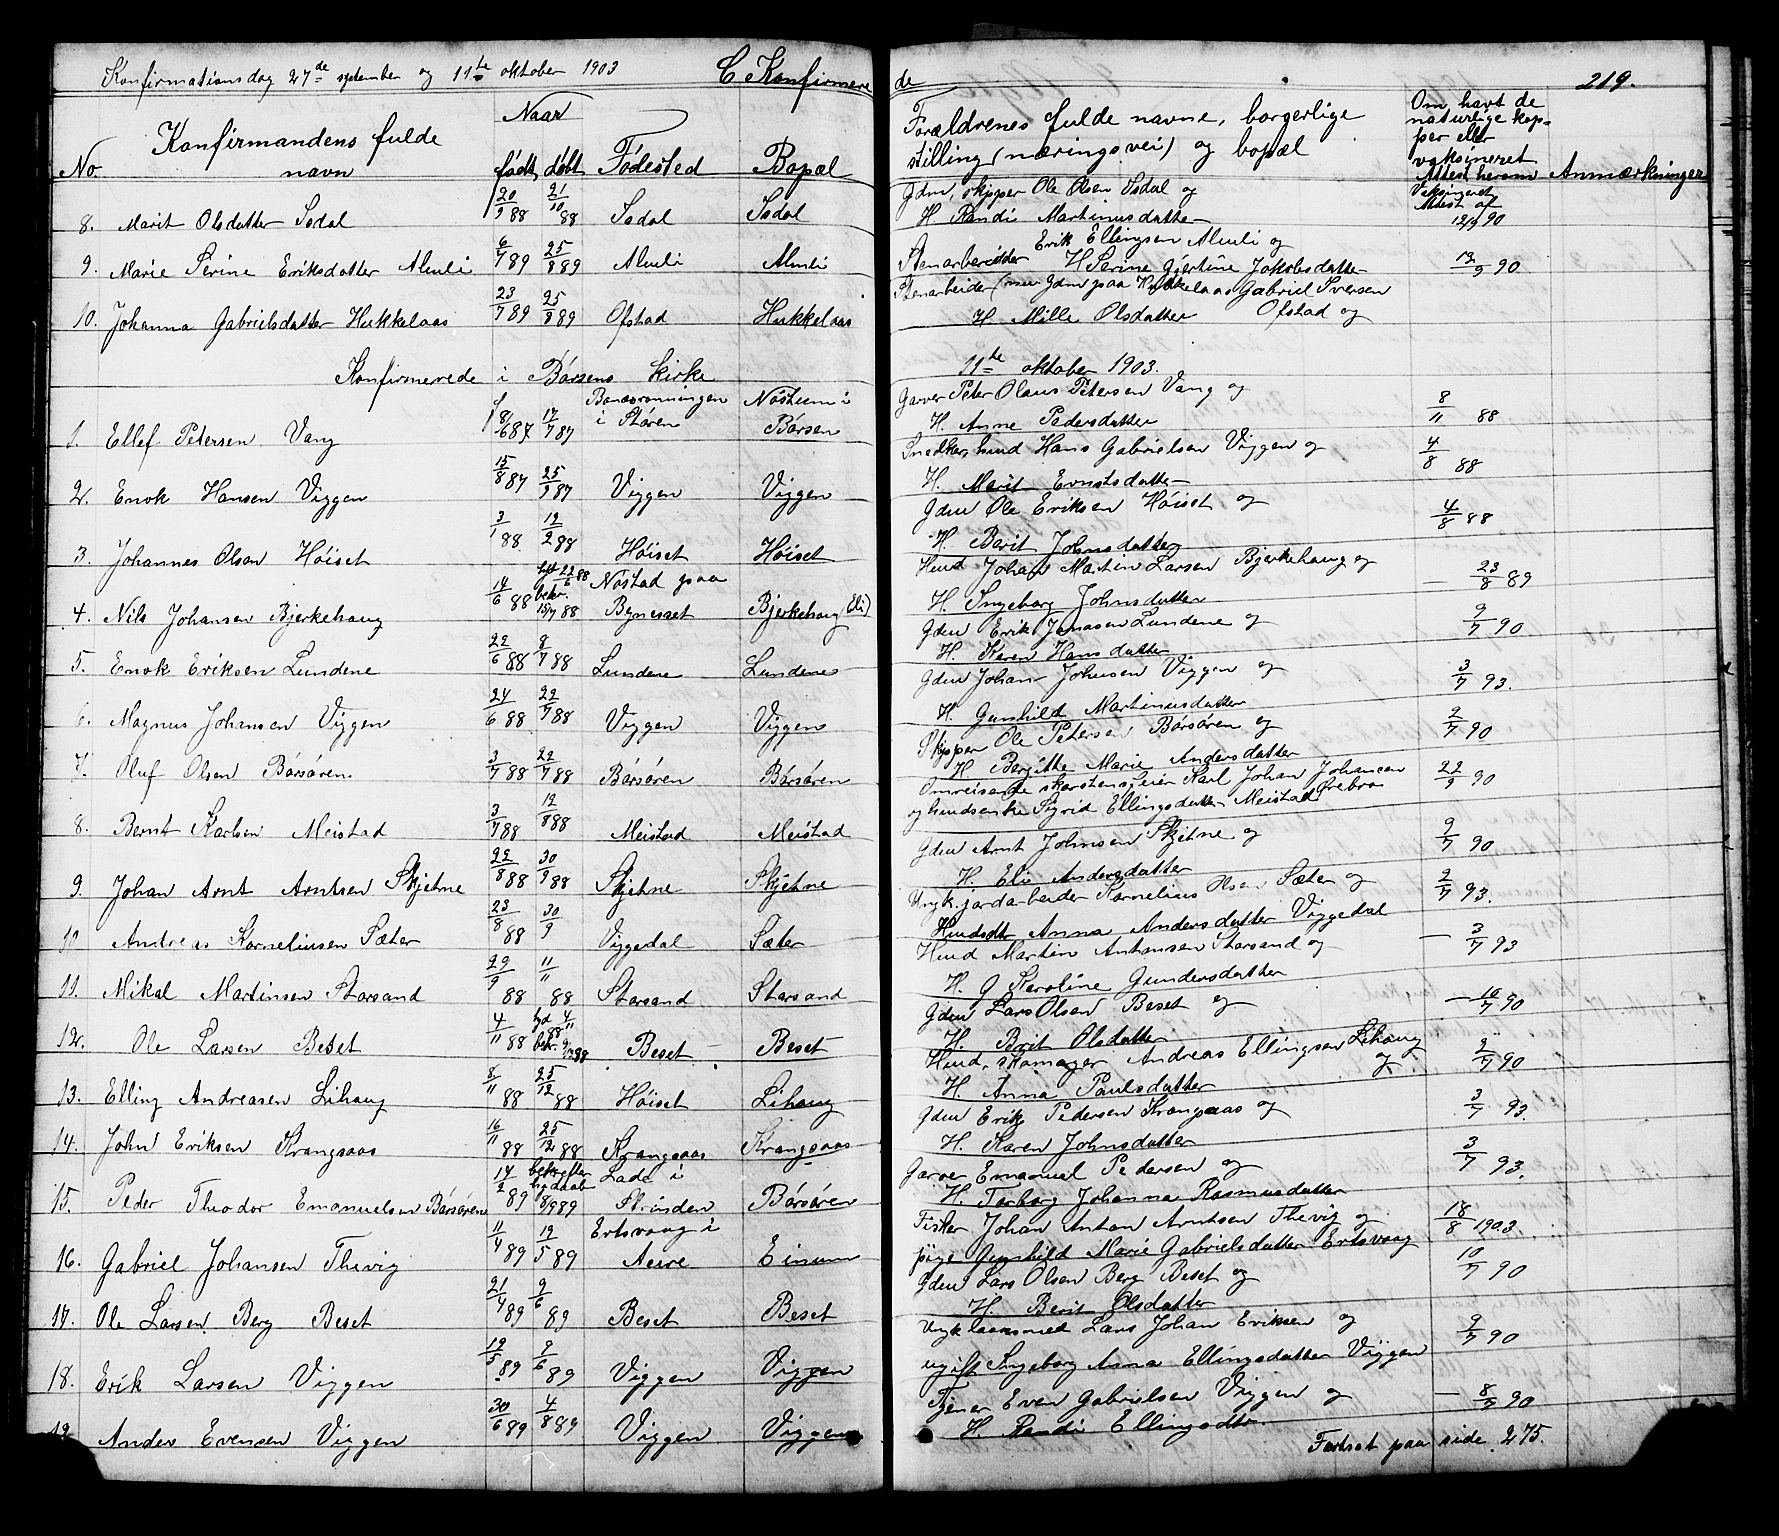 Konfirmationsdag 27de september og 11te oktober 1903 C Konfirmere de 219.
No Konfirmandens fulde navn Naar født døbt Fødested Bopæl Forældrenes fulde navne, borgerlige stilling (næringsvei) og bopæl Om havt de naturlige kopper eller vaksineret Attest herom Anmærkninger
8. Marit Olsdatter Sodal 20/9 88 21/10 88 Sodal Sodal Gdm, skipper Ole Olsen Sodal og H. Randi Martinusdatter Vaksineret Attest af 12/9 90
9. Marie Serine Eriksdatter Almli 6/7 89 25/8 89 Almli Almli Stenarbeider Erik Ellingsen Almli og H Serine Gjertine Jakobsdatter 13/9 90
10. Johanna Gabrielsdatter Hukkelaas 23/7 89 25/8 89 Ofstad Hukkelaas Stenarbeider (nu Gdm paa Hukkelaas Gabriel Iversen Ofstad og H Mille Olsdatter
Konfirmerede i Børsens kirke 11te oktober 1903.
1. Ellef Petersen Vang 8/6 87 17/7 87 i Støren Nøstum i Børsen Garver Peter Olaus Petersen Vang og H. Anne Pedersdatter 8/11 88
2. Enok Hansen Viggen 15/8 87 25/9 87 Viggen Viggen Snedker, husmd Hans Gabrielsen Viggen og H. Marit Erntsdatter 4/8 88
3. Johannes Olsen Høiset 3/1 88 12/2 88 Høiset Høiset Gdm Ole Eriksen Høiset og H. Berit Johnsdatter 4/8 88
4. Nils Johansen Bjerkehaug 14/6 88 22/6 88 bekr. 15/7 88 Nøstad paa Bynesset Bjerkehaug (Eli) Husmd Johan Martin Larsen Bjerkehaug og H. Ingeborg Johnsdatter – 23/8 89
5. Enok Eriksen Lundene 22/6 88 8/7 88 Lundene Lundene Gdm Erik Jonasen Lundene og H. Karen Hansdatter 9/7 90
6. Magnus Johansen Viggen 24/6 88 22/7 88 Viggen Viggen Gdm Johan Johnsen Viggen og H. Gunhild Martinusdatter 3/7 93.
7. Oluf Olsen Børsøren 3/7 88 22/7 88 Børsøren Børsøren Skipper Ole Petersen Børsøren og H. Bergitte Marie Andersdatter 9/7 90
8. Bernt Karlsen Meistad 3/7 88 12/8 88 Meistad Meistad Omreisende skorstensfeier Karl Johan Johansen Ørebro og husmdsenke Sigrid Ellingsdatter Meistad 22/9 90
9. Johan Arnt Arntsen Skjetne 22/8 88 30/9 88 Skjetne Skjetne Gdm Arnt Johnsen Skjetne og H. Eli Andersdatter 9/7 90
10. Andreas Kornelinsen Sæter 23/8 88 30/9 Viggedal Sæter Ungk. jordarbeider Kornelius Olsen Sæter og Husmdsdtr Anna Andersdatter Viggedal 2/7 93.
11. Mikal Martinsen Storsand 29/9 88 11/11 88 Storsand Storsand Husmd Martin Antonsen Storsand og H. G Karoline Gundersdatter – 3/7 93
12. Ole Larsen Beset 4/11 88 4/11 88 bekr. 9/12 88 Beset Beset Gdm Lars Olsen Beset og H. Berit Olsdatter – 10/7 90
13. Elling Andreasen Lihaug 8/11 88 25/12 88 Høiset Lihaug Husmd, skomager Andreas Ellingsen Lihaug og H. Anna Paulsdatter 9/7 90
14. John Eriksen Krangsaas 16/11 88 25/12 88 Krangsaas Krangsaas Gdm Erik Pedersen Krangsaas og H. Karen Johnsdatter 3/7 93.
15. Peder Theodor Emanuelsen Børsøren 14/2 89 bekr. efter hjdaab 8/9 89 Lade i Strinden Børsøren Garver Emanuel Pedersen og H. Torborg Johanna Rasmusdatter 3/7 93.
16. Gabriel Johansen Thevig 11/4 89 19/5 89 Ertsvaag i Aure Einum Fisker Johan Anton Arntsen Thevig og pige Gunhild Marie Gabrielsdatter Ertsvaag 18/8 1903.
17. Ole Larsen Berg Beset 21/4 89 9/6 89 Beset Beset Gdm Lars Olsen Berg Beset og H. Berit Olsdatter 10/7 90
18. Erik Larsen Viggen 19/5 89 9/6 89 Viggen Viggen Ungk laansmed Lars Johan Eriksen og ugift Ingeborg Anna Ellingsdatter Viggen 9/7 90
19. Anders Evensen Viggen 30/6 89 4/8 89 Viggen Viggen Tjener Even Gabrielsen Viggen og H. Randi Ellingsdtr. – 8/7 90
Fortsat paa side 275.